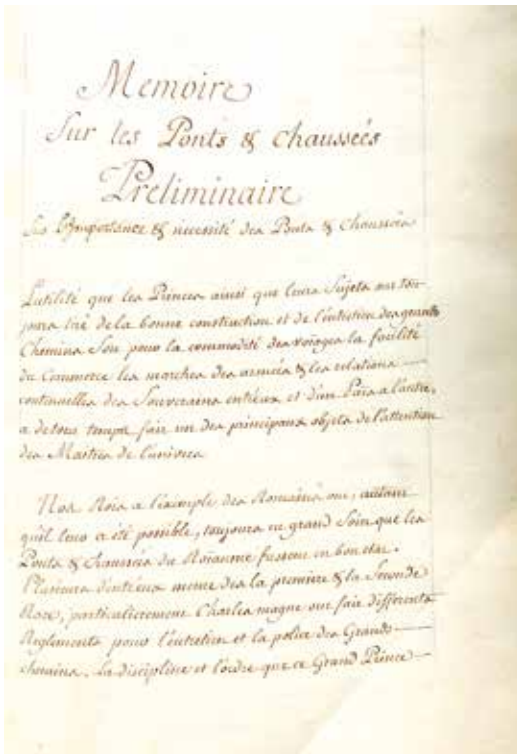 Memoire
Sur les Ponts & chaussées
Préliminaire
Sur l'Importance & nécessité des Ponts & Chaussées
L'utilité que les Princes ainsi que leurs Sujets ont tou-
jours tiré de la bonne construction et de l'entretien des grands
Chemins Soit pour la commodité des voiages la facilité
du Commerce les marches des armées & les relations
continuelles des Souverains entr'eux et d'un Païs a l'autre,
a de tous temps fait un des principaux objets de l'attention
des Maitres de l'univers
Nos Rois a l'exemple des Romains ont, autant
qu'il leur a été possible, toujours eu grand Soin que les
Ponts & Chaussées du Roiaume fussent en bon etat.
Plusieurs d'entr'eux meme des la premiere & la Seconde
Race, particulierement Charlemagne ont fait differents
Reglements pour l'entretien et la police des Grands
chemins. La discipline et l'ordre que ce Grand Prince